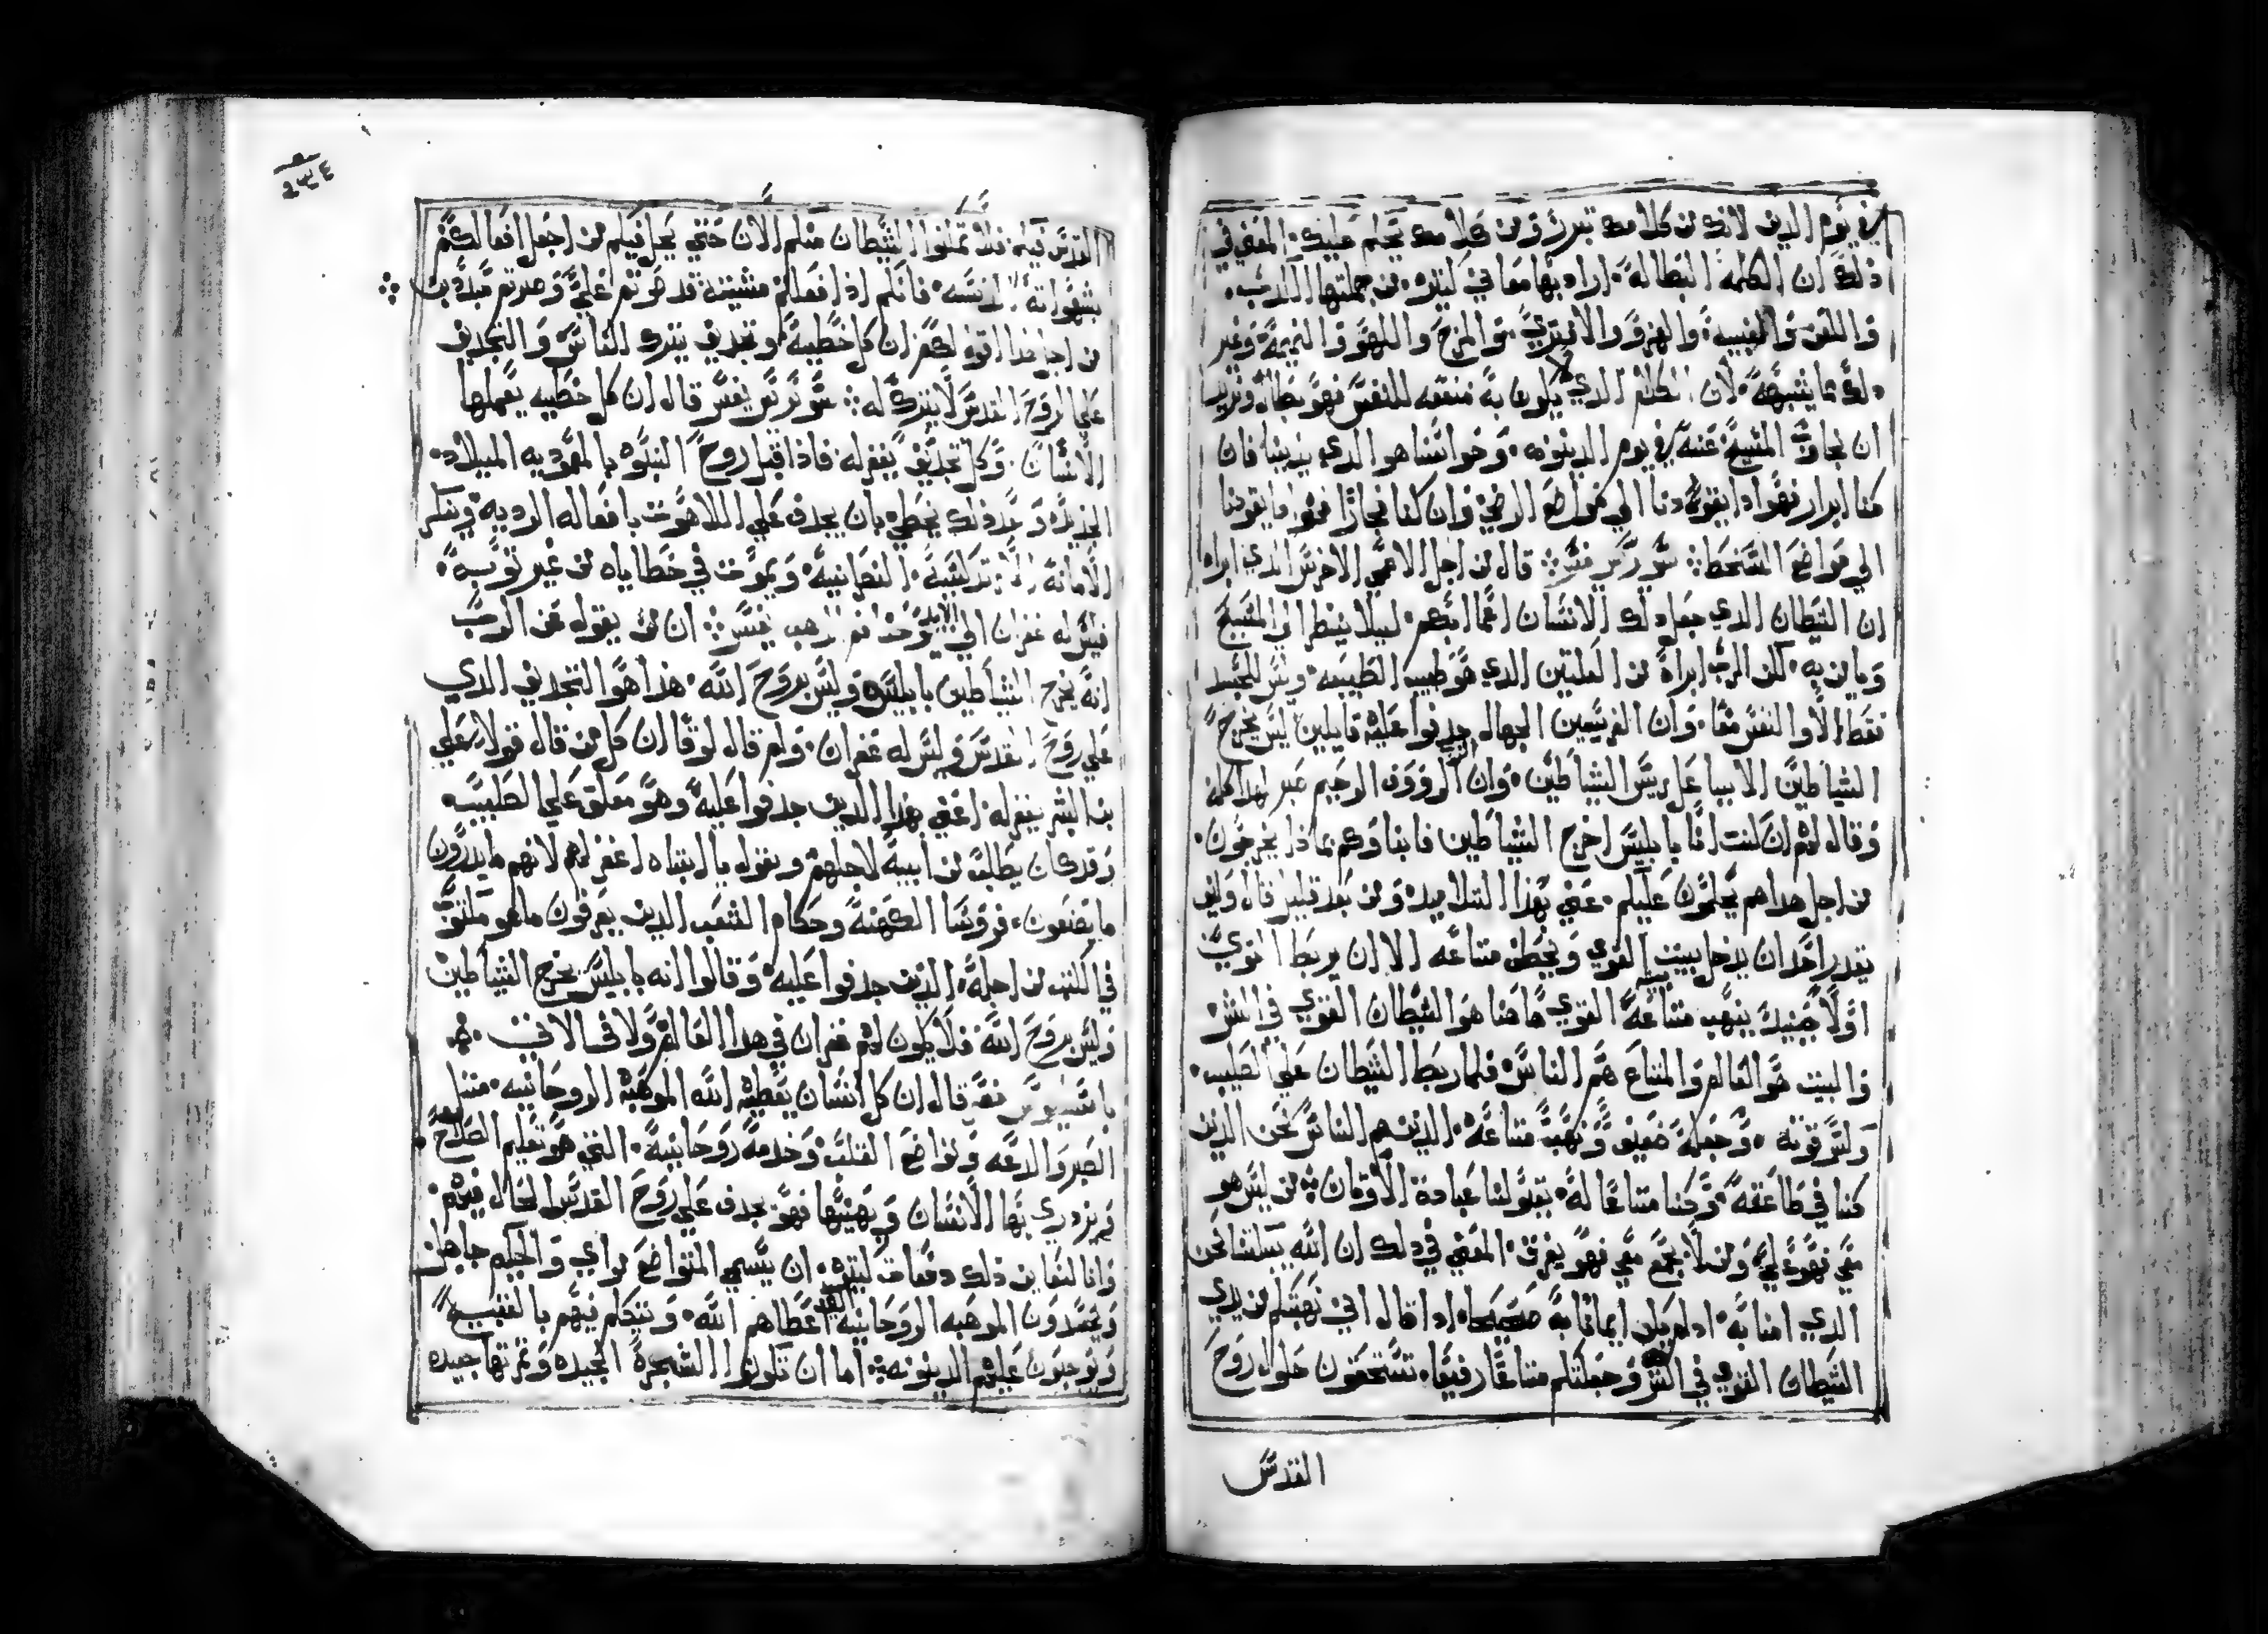 في يوم الدين لانك من كلامك تبرر ومن كلامك يحكم عليك المعني في
ذلك ان الكلمه البطاله اراد بها معاني كثيره من جملتها الكدب
واللعن والغيبه والهزو والافتري والمزح واللهو والنميمه وغير
دلك مما يشبهه لان الكلام الدي يكون ما به منفعه للنفس فهو بطال
ان يجاوب المسيح عنه في يوم الدينونه وحواسنا هو الدي يديننا فان
كنا ابرار فهو ادا يقودنا الي مواضع الرضي وان كنا فجارا فهو ما يقودنا
الي مواضع السخط قال من اجل الاعمي الاخرس الدي ابراه
ان الشيطان الدي جعل دلك الانسان اعما ابكم ليلا ينظر الي المسيح
ويامن به لكن الرب ابراه من العلتين الدي هو طبيب الطبيعه وليس للجسد
فقط الا والنفس معا وان الفريسيين الجهال جدفوا عليه قايلين ليس يخرج
الشياطين الا بباعل ريس الشياطين وان الرووف الرحيم صبر لهدا كله
وقال لهم ان كنت انا بابليس اخرج الشياطين فابناوكم بماذا يخرجون
من اجل هدا هم يحكمون عليكم عني بهذا التلاميد ومن بعد قليل قال وكيف
يقدر احد ان يدخل بيت القوي ويخطف متاعه الا ان يربط القوي
اولا حينيد ينهب متاعه القوي هاهنا هو الشيطان القوي في الشر
والبيت هو العالم والمتاع هم الناس فلما ربط الشيطان علي الصليب
وكسر قوته وجعله ضعيف ونهب متاعه الدين هم الناس نحن الدين
كنا في طاعته وكنا متاعا له بقبولنا عبادة الاوثان من ليس هو
معي فهو علي ومن لا يجمع معي فهو يفرق المعني في دلك ان الله يسلنا نحن
الدي امنا به ادا لم يكن ايمانا به صحيحا ادا قال اني نهبتكم من يدي
الشيطان القوي في الشر وجعلتكم متاعا رفيعا تستحقون حلول روح
القدس
القدس فيكم فلا تملكوا الشيطان منكم الان حتي يحل فيكم من اجل افعالكم
بشهواته الدنسه فانكم اذا فعلتم مشيته قد صرتم علي وصرتم مبددين
من اجل هذا اقول لكم ان كل خطيه وتجديف يترك للناس والتجديف
علي الروح القدس لا يترك له قال ان كل خطيه يعملها
الانسان وكل تجديف يغفر له فاذا قبل روح البنوه بالمعموديه الميلاد
الجديد وبعد ذلك يخطي بان يجدف علي اللاهوت بافعاله الرديه وينكر
الامانه الارتدكسيه النصرانيه ويموت في خطاياه من غير توبه
فليس له غفران الي الابد يوحنا فم الدهب يفسر ان من يقول عن الرب
انه يخرج الشياطين بابليس وليس بروح الله هذا هو التجديف الدي
علي روح القدس وليس له غفران ولم قال لوقا ان كل من قال قولا علي
بن البشر يغفر له اعني بهذا الدين جدفوا عليه وهو معلق علي الصليب
وقد كان يطلب من ابيه لاجلهم ويقول يا ابتاه اغفر لهم لانهم ما يدرون
ما يصنعون فروسا الكهنه وحكام الشعب الدين يعرفون ما هو مكتوب
في الكتب من اجله الدين جدفوا عليه وقالوا انه بابليس يخرج الشياطين
وليس بروح الله فلا يكون لهم غفران في هدا العالم ولا في الاتي
قال ان كل انسان يعطيه الله الموهبه الروحانيه مثل
الصبر والدعه وتواضع القلب وخدمه روحانيه التي هو تعليم الصلاح
ويزدري بها الانسان ويهينها فهو يجدف علي روح القدس الحال فيهم
وانا لنعاين ذلك دفعات كتيره ان يسمي المتواضع مراي والحكيم جاهل
ويحسدون الموهبه الروحانيه التي اعطاهم الله ونتكلم فيهم بالغيبه
ويوجبون عليهم الدينونه اما ان تكونوا الشجره الجيده وثمرتها جيده